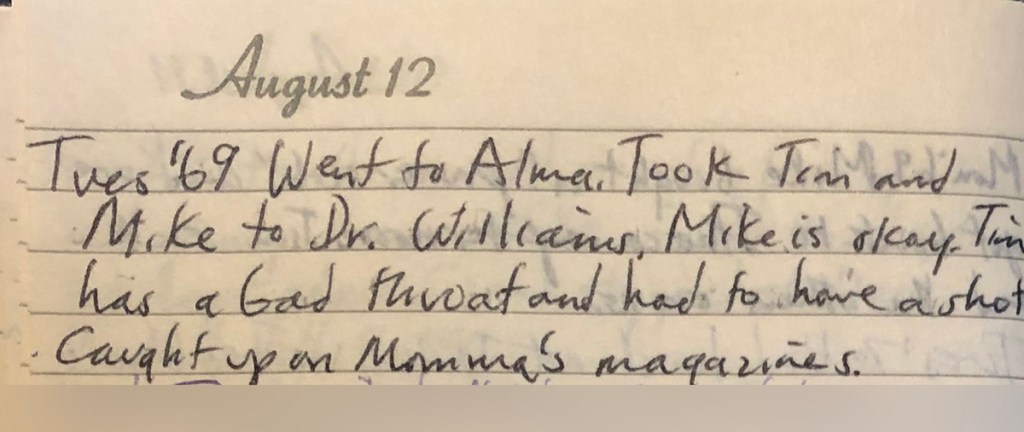 August 12
Tues '69 Went to Alma. Took Tim and
Mike to Dr. Williams, Mike is okay. Tim
has a bad throat and had to have a shot
Caught up on Momma's magazines.